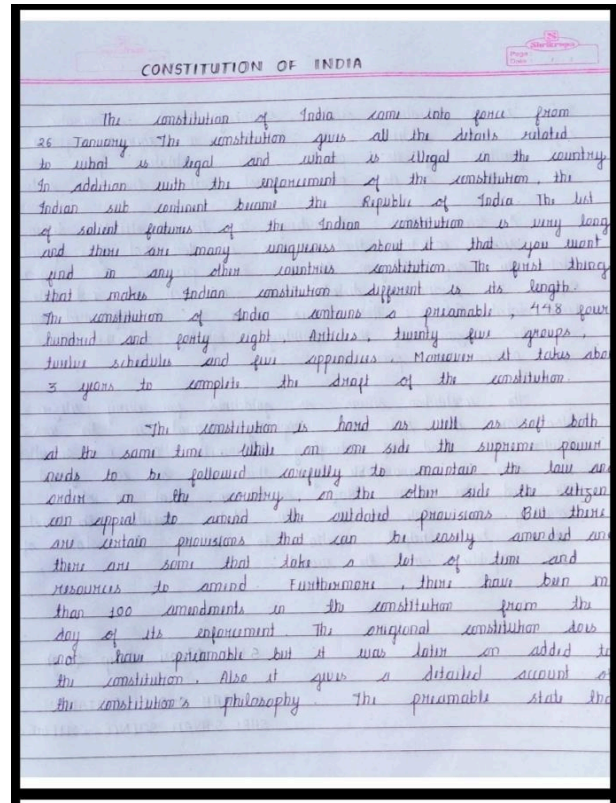 Shri Shringar
Page
Date
CONSTITUTION OF INDIA
The constitution of India came into force from
26 January The constitution gives all the details related
to what is legal and what is illegal in the country.
In addition with the enforcement of the constitution, the
Indian sub continent became the Republic of India The list
of salient features of the Indian constitution is very long
and there are many uniqueness about it that you wont
find in any other countries constitution. The first thing
that makes Indian constitution different is its length.
The constitution of India contains a preamable, 448 four
hundred and forty eight, Articles, twenty five groups,
twelve schedules and five appendices Moreover it takes abo
3 years to complete the draft of the constitution.
The constitution is hard as well as soft both
at the same time While on one side the supreme power
needs to be followed carefully to maintain the law and
order in the country, on the other side the citizen
can appeal to amend the outdated provisions. But there
are certain provisions that can be easily amended and
there are some that take a lot of time and
resources to amend Furthermore, there have been m
than 100 amendments in the constitution from the
day of its enforcement. The origional constitution does
not have preamable but it was later on added to
the constitution. Also it gives a detailed account o
the constitution's philosophy. The preamable state tha